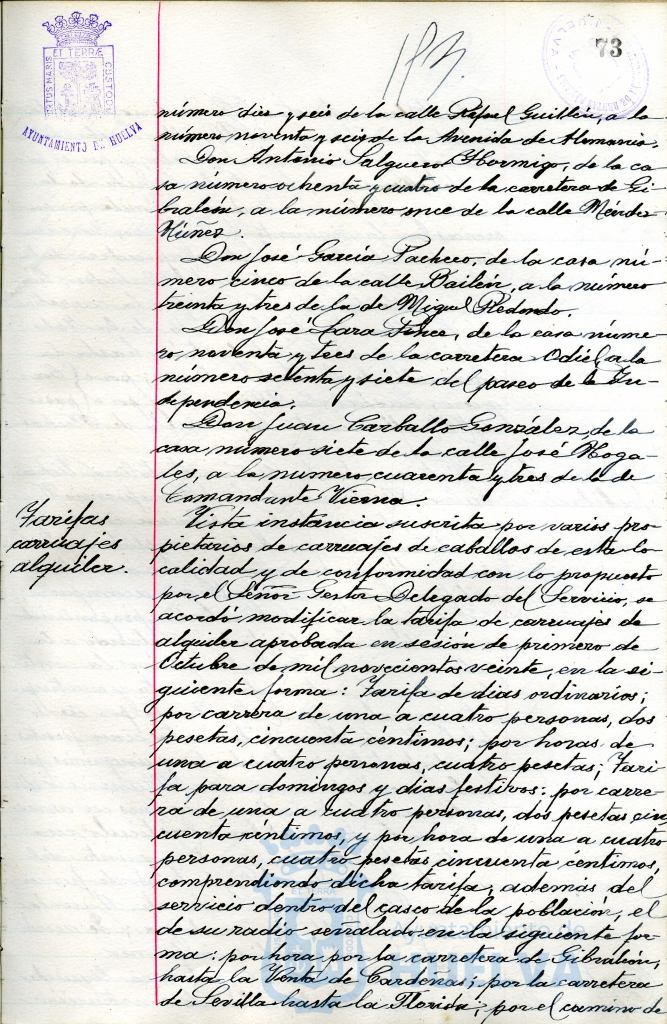 73
PORTUS MARIS ET TERRÆ CUSTODIA
AYUNTAMIENTO DE HUELVA
número diez y seis de la calle Rafael Guillén, a la
número noventa y seis de la Avenida de Alemania.
Don Antonio Salguero Hormigo, de la ca
sa número ochenta y cuatro de la carretera de Gi
braleón, a la número once de la calle Méndez
Núñez.
Don José García Pacheco, de la casa nú-
mero cinco de la calle Bailén, a la número
treinta y tres de la de Miguel Redondo.
Don José Lara, de la casa núme-
ro, noventa y tres de la carretera Odiel, a la
número setenta y siete del paseo de la In-
dependencia.
Don Juan Carballo González, de la
casa número siete de la calle José Noga-
les, a la numero cuarenta y tres de la de
Comandante Vierna.
Tarifas
carruajes
alquiler.
Vista instancia suscrita por varios pro
pietarios de carruajes de caballos de esta lo-
calidad y de conformidad con lo propuesto
por el Señor Gestor Delegado del Servicio, se
acordó modificar la tarifa de carruajes de
alquiler aprobada en sesión de primero de
Octubre de mil novecientos veinte, en la si-
guiente forma: Tarifa de dias ordinarios;
por carrera de una a cuatro personas, dos
pesetas, cincuenta céntimos; por horas de
una a cuatro personas, cuatro pesetas; Tari
fa para domingos y dias festivos: por carre-
ra de una a cuatro personas, dos pesetas cin
cuenta céntimos, y por hora de una a cuatro
personas, cuatro pesetas cincuenta centimos,
comprendiendo dicha tarifa, además del
servicio dentro del casco de la población, el
de su radio señalado en la siguiente for-
ma: por hora por la carretera de Gibraleón,
hasta la Venta de Cardeñas; por la carretera
de Sevilla hasta la Florida; por el camino de
Ayuntamiento de
HUELVA